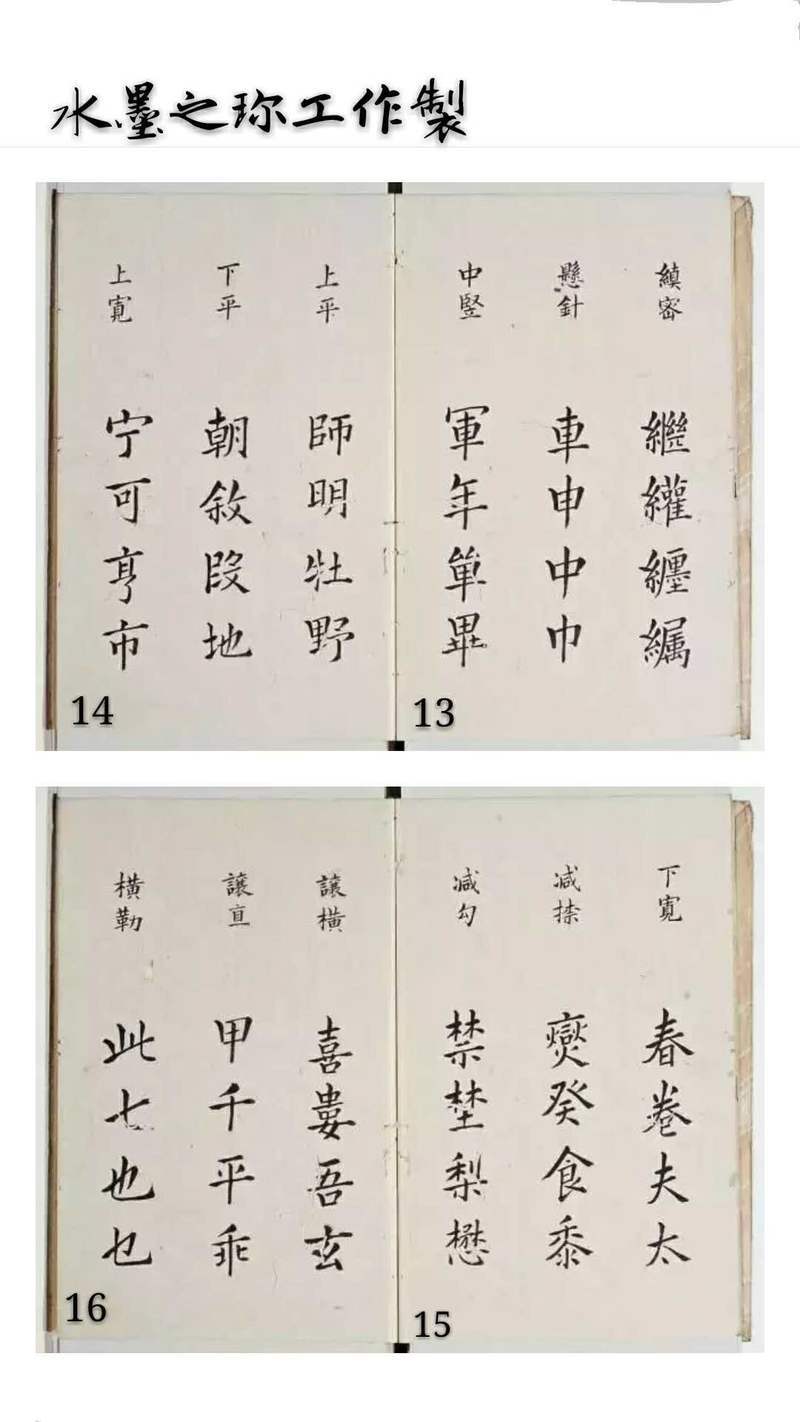 水墨之珎工作製
縝密
繼纙纏纊
懸針
車申中巾
中竪
軍年單畢
13
上平
師明牡野
下平
朝敘段地
上寬
宁可亨市
14
下寬
春卷夫太
减捺
燮癸食黍
减勾
禁埜梨懋
15
讓橫
喜婁吾玄
讓直
甲千平乖
橫勒
此七也乜
16